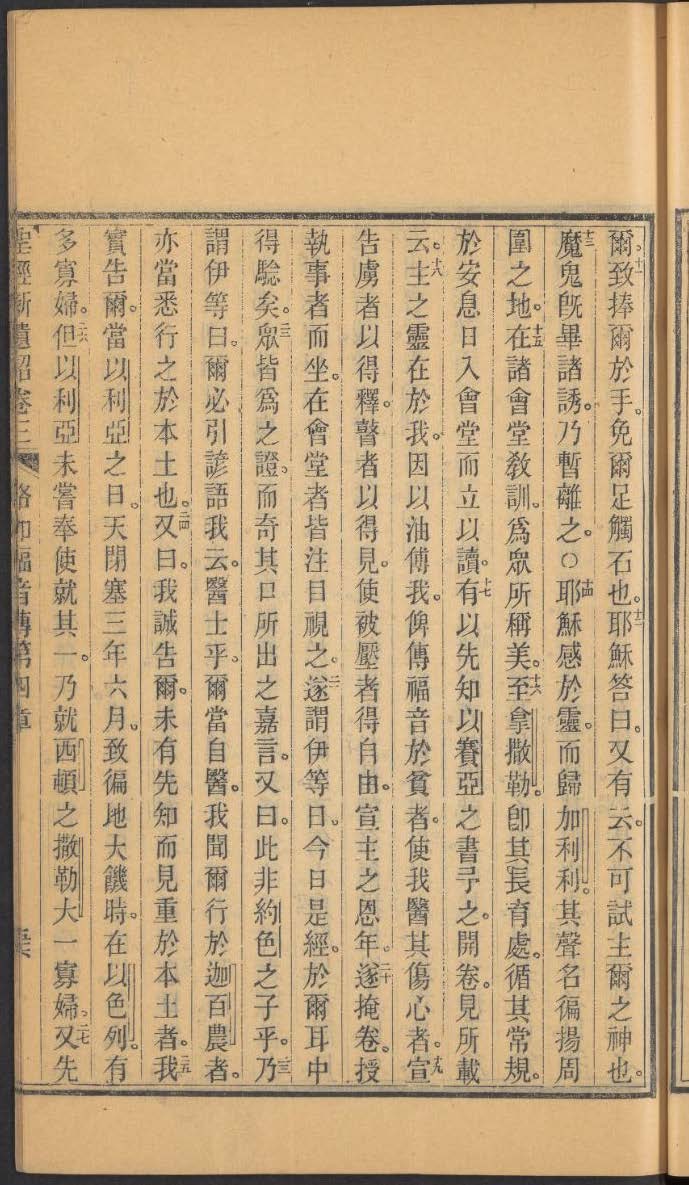 十一爾致捧爾於手。免爾足觸石也。十二耶穌答曰。又有云。不可試主爾之神也。
十三魔鬼旣畢諸誘。乃暫離之。○十四耶穌感於靈。而歸加利利。其聲名徧揚周
圍之地。十五在諸會堂敎訓。爲眾所稱美。十六至拿撒勒。卽其長育處。循其常規。
於安息日入會堂而立以讀。十七有以先知以賽亞之書予之。開卷。見所載
云。十八主之靈在於我。因以油傅我。俾傳福音於貧者。使我醫其傷心者。十九宣
告虜者以得釋。瞽者以得見。使被壓者得自由。宣主之恩年。二十遂掩卷。授
執事者而坐。在會堂者皆注目視之。二一遂謂伊等曰。今日是經。於爾耳中
得驗矣。二二眾皆爲之證。而奇其口所出之嘉言。又曰。此非約色之子乎。二三乃
謂伊等曰。爾必引諺語我云。醫士乎。爾當自醫。我聞爾行於迦百農者。
亦當悉行之於本土也。二四又曰。我誠告爾。未有先知而見重於本土者。二五我
實告爾。當以利亞之日。天閉塞三年六月。致徧地大饑時。在以色列。有
多寡婦。二六但以利亞未嘗奉使就其一。乃就西頓之撒勒大一寡婦。二七又先
聖經新遺詔卷三 路加福音傳第四章